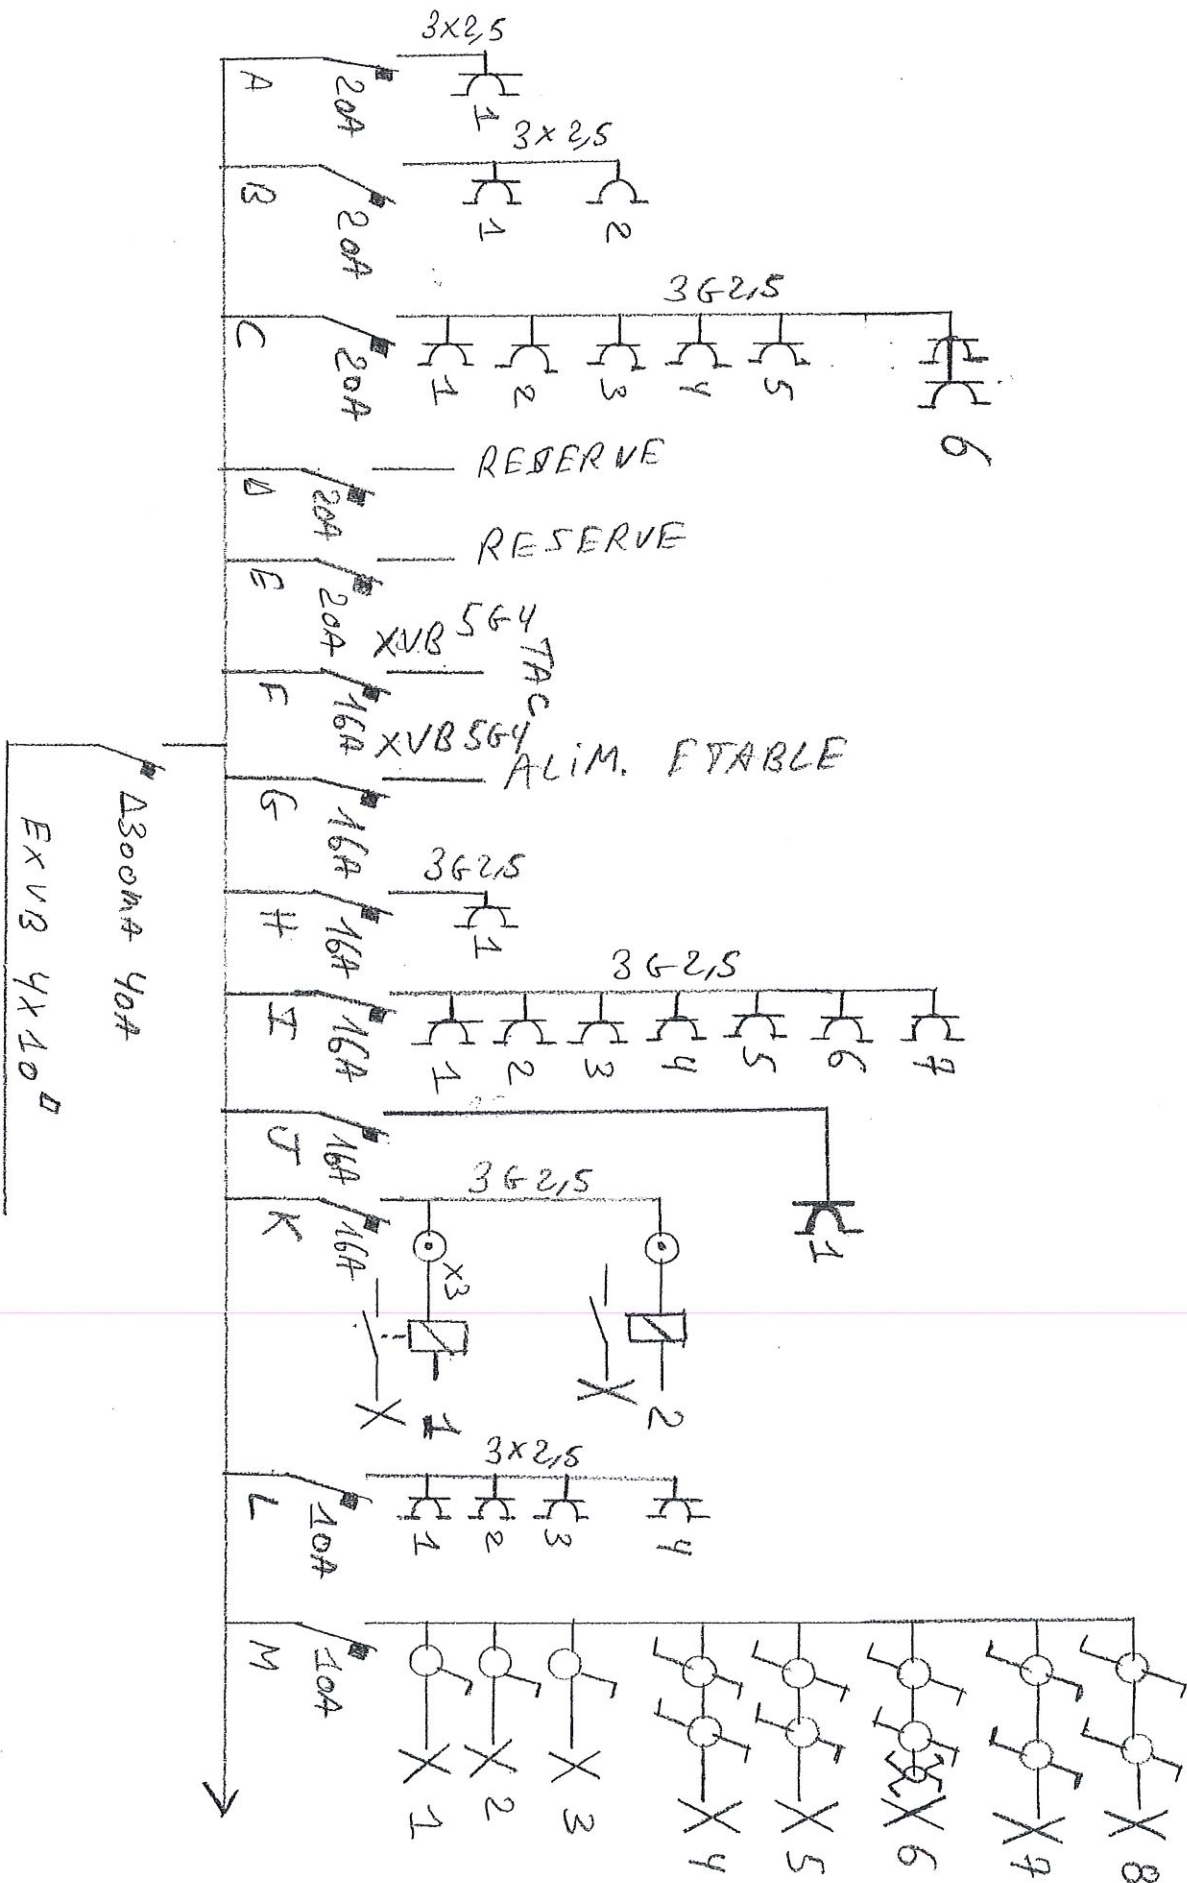 3x2,5
A
20A
1
3x2,5
B
20A
1
2
3G2,5
C
20A
1
2
3
4
5
6
RESERVE
D
20A
RESERVE
E
20A
XVB 5G4
TAC
F
16A
XVB 5G4
ALiM. ETABLE
G
16A
3G2,5
H
16A
1
3G2,5
I
16A
1
2
3
4
5
6
7
J
16A
1
3G2,5
K
16A
x3
1
2
3x2,5
L
10A
1
2
3
4
M
10A
1
2
3
4
5
6
7
8
Δ300mA 40A
EXVB 4x10□